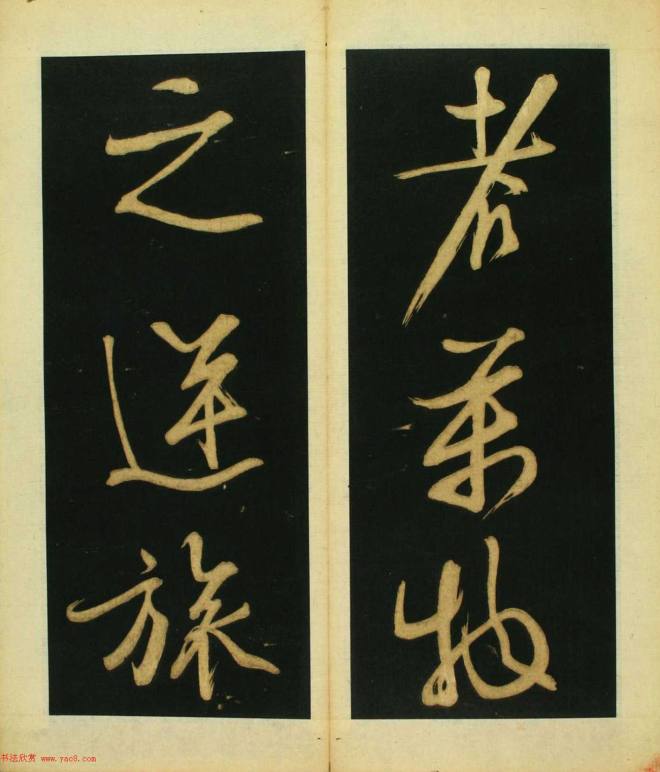 者萬物
之逆旅
书法欣赏 www.yac8.com